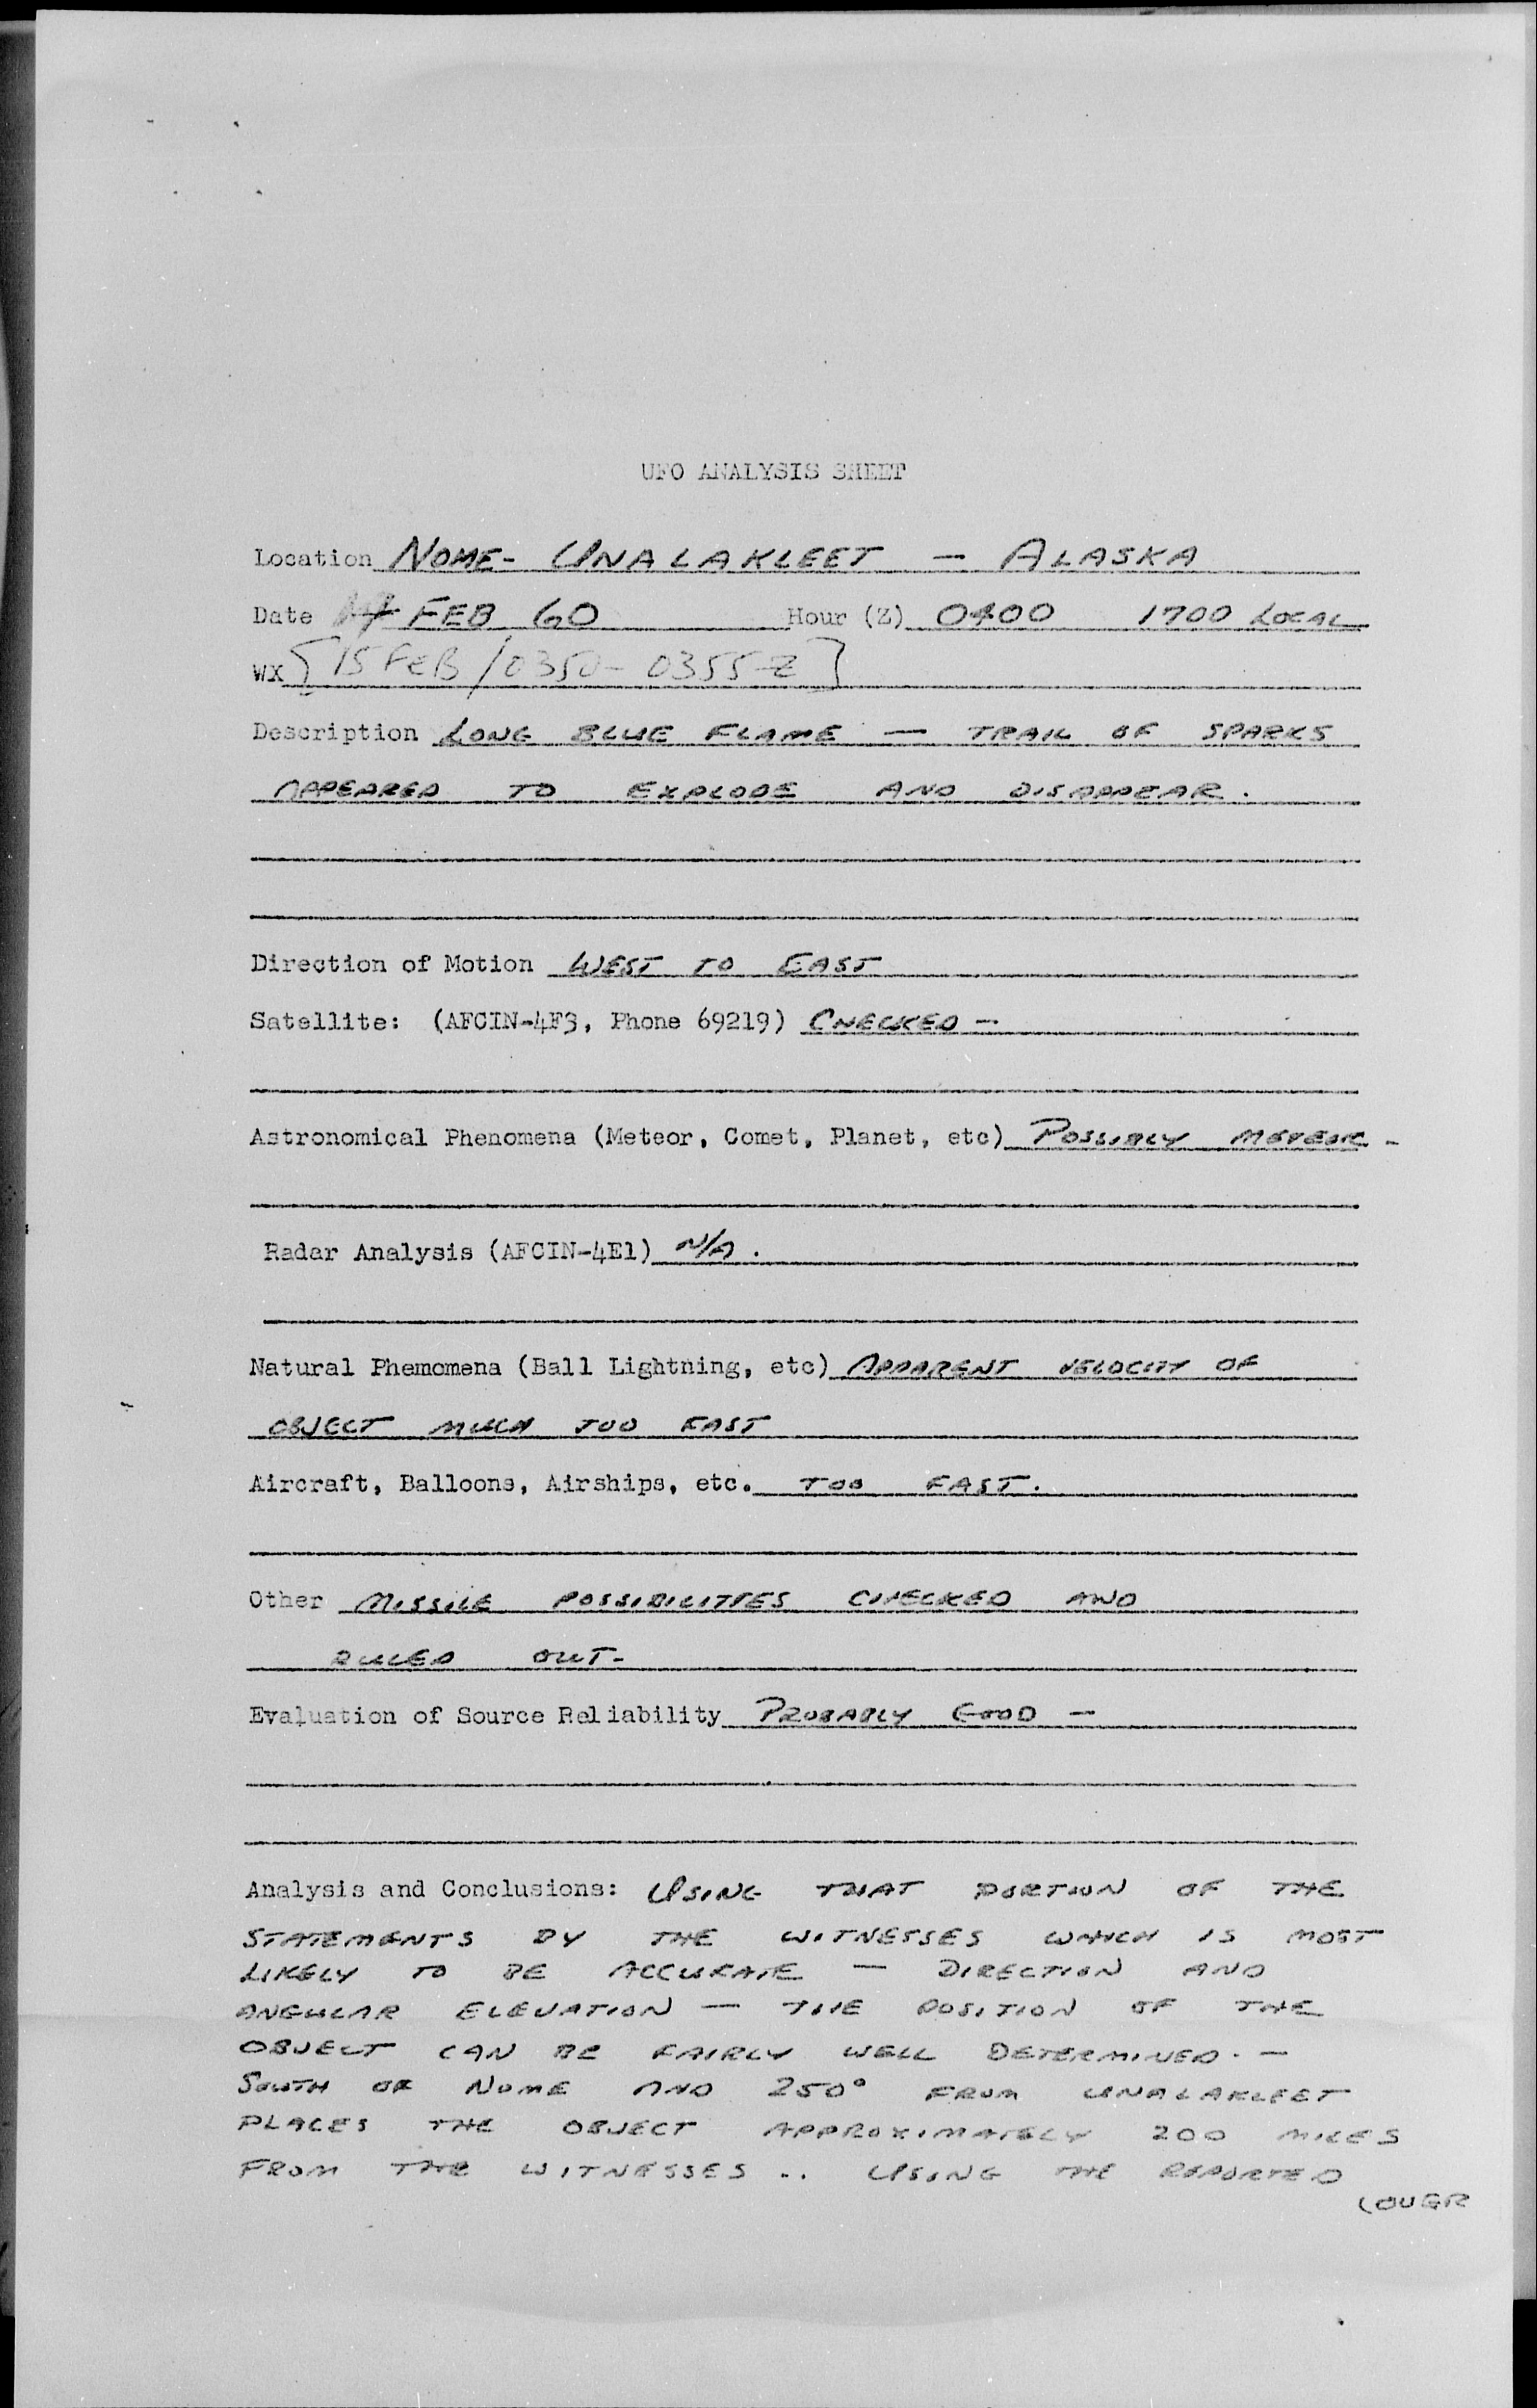 UFO ANALYSIS SHEET
Location NOME- UNALAKLEET — ALASKA
Date 14 FEB 60 Hour (Z) 0400 1700 LOCAL
WX [15 FEB/0350-0355Z]
Description LONG BLUE FLAME — TRAIL OF SPARKS
APPEARED TO EXPLODE AND DISAPPEAR.
Direction of Motion WEST TO EAST
Satellite: (AFCIN-4F3, Phone 69219) CHECKED —
Astronomical Phenomena (Meteor, Comet, Planet, etc) POSSIBLY METEOR -
Radar Analysis (AFCIN-4E1) N/A.
Natural Phemomena (Ball Lightning, etc) APPARENT VELOCITY OF
OBJECT MUCH TOO FAST
Aircraft, Balloons, Airships, etc. TOO FAST.
Other MISSILE POSSIBILITIES CHECKED AND
RULED OUT-
Evaluation of Source Reliability PROBABLY GOOD —
Analysis and Conclusions: USING THAT PORTION OF THE
STATEMENTS BY THE WITNESSES WHICH IS MOST
LIKELY TO BE ACCURATE — DIRECTION AND
ANGULAR ELEVATION — THE POSITION OF THE
OBJECT CAN BE FAIRLY WELL DETERMINED. —
SOUTH OF NOME AND 250° FROM UNALAKLEET
PLACES THE OBJECT APPROXIMATELY 200 MILES
FROM THE WITNESSES .. USING THE REPORTED
(OVER